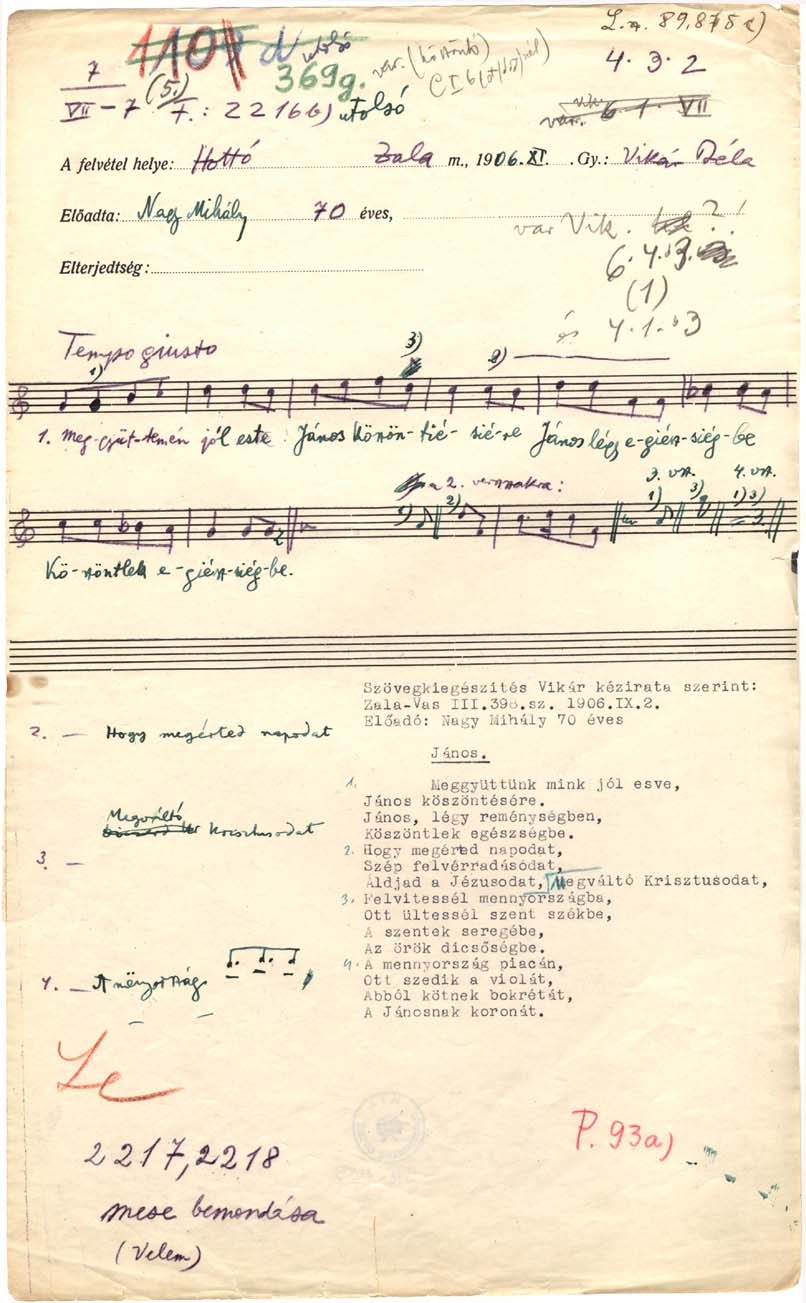 L. 89,875 c)
utolsó
369g. var. (köszöntő)
4·3·2
7
VII–7 (5.) F.: 2216b) utolsó
A felvétel helye: Hottó Zala m., 1906.XI. Gy.: Vikár Béla
Előadta: Nagy Mihály 70 éves,
var Vik. ?!
Elterjedtség:
(1)
és 4·1·b3
Tempo giusto
1) 3) 2)
1. Meg-gyüt-temén jól este János Közön-tié-sié-re János légy e-giés-siég-be
a 2. versszakra: 3. vsz. 4. vsz.
2) 1) 3) 1) 3)
Kö-szöntlek e-giés-siég-be.
Szövegkiegészités Vikár kézirata szerint:
Zala-Vas III.398.sz. 1906.IX.2.
Előadó: Nagy Mihály 70 éves
2. — Hogy megérted napodat
János.
1. Meggyüttünk mink jól esve,
János köszöntésére.
János, légy reménységben,
Köszöntlek egészségbe.
Megváltó
Krisztusodat
2. Hogy megérted napodat,
Szép felvérradásodat,
Áldjad a Jézusodat, Megváltó Krisztusodat,
3. —
3. Felvitessél mennyországba,
Ott ültessél szent székbe,
A szentek seregébe,
Az örök dicsőségbe.
4. — A ményország
4. A mennyország piacán,
Ott szedik a violát,
Abból kötnek bokrétát,
A Jánosnak koronát.
Le
P. 93a)
2217, 2218
mese bemondása
(Velem)